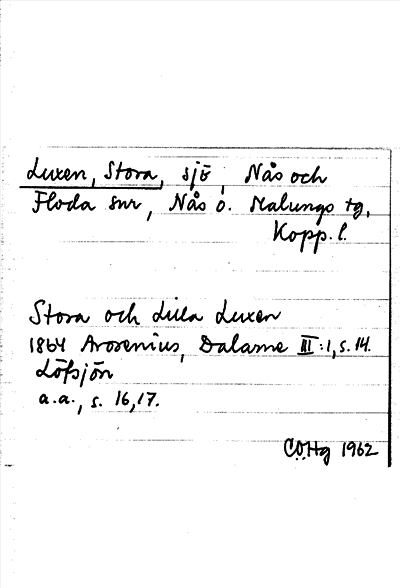 Luxen, Stora, sjö, Nås och
Floda snr, Nås o. Malungs tg,
Kopp. l.
Stora och Lilla Luxen
1864 Arosenius, Dalarne III:1, s. 14.
Löfsjön
a.a., s. 16, 17.
C.O.Hg 1962